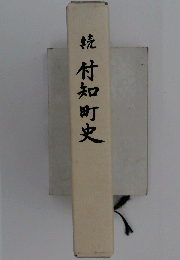 続
付知町史